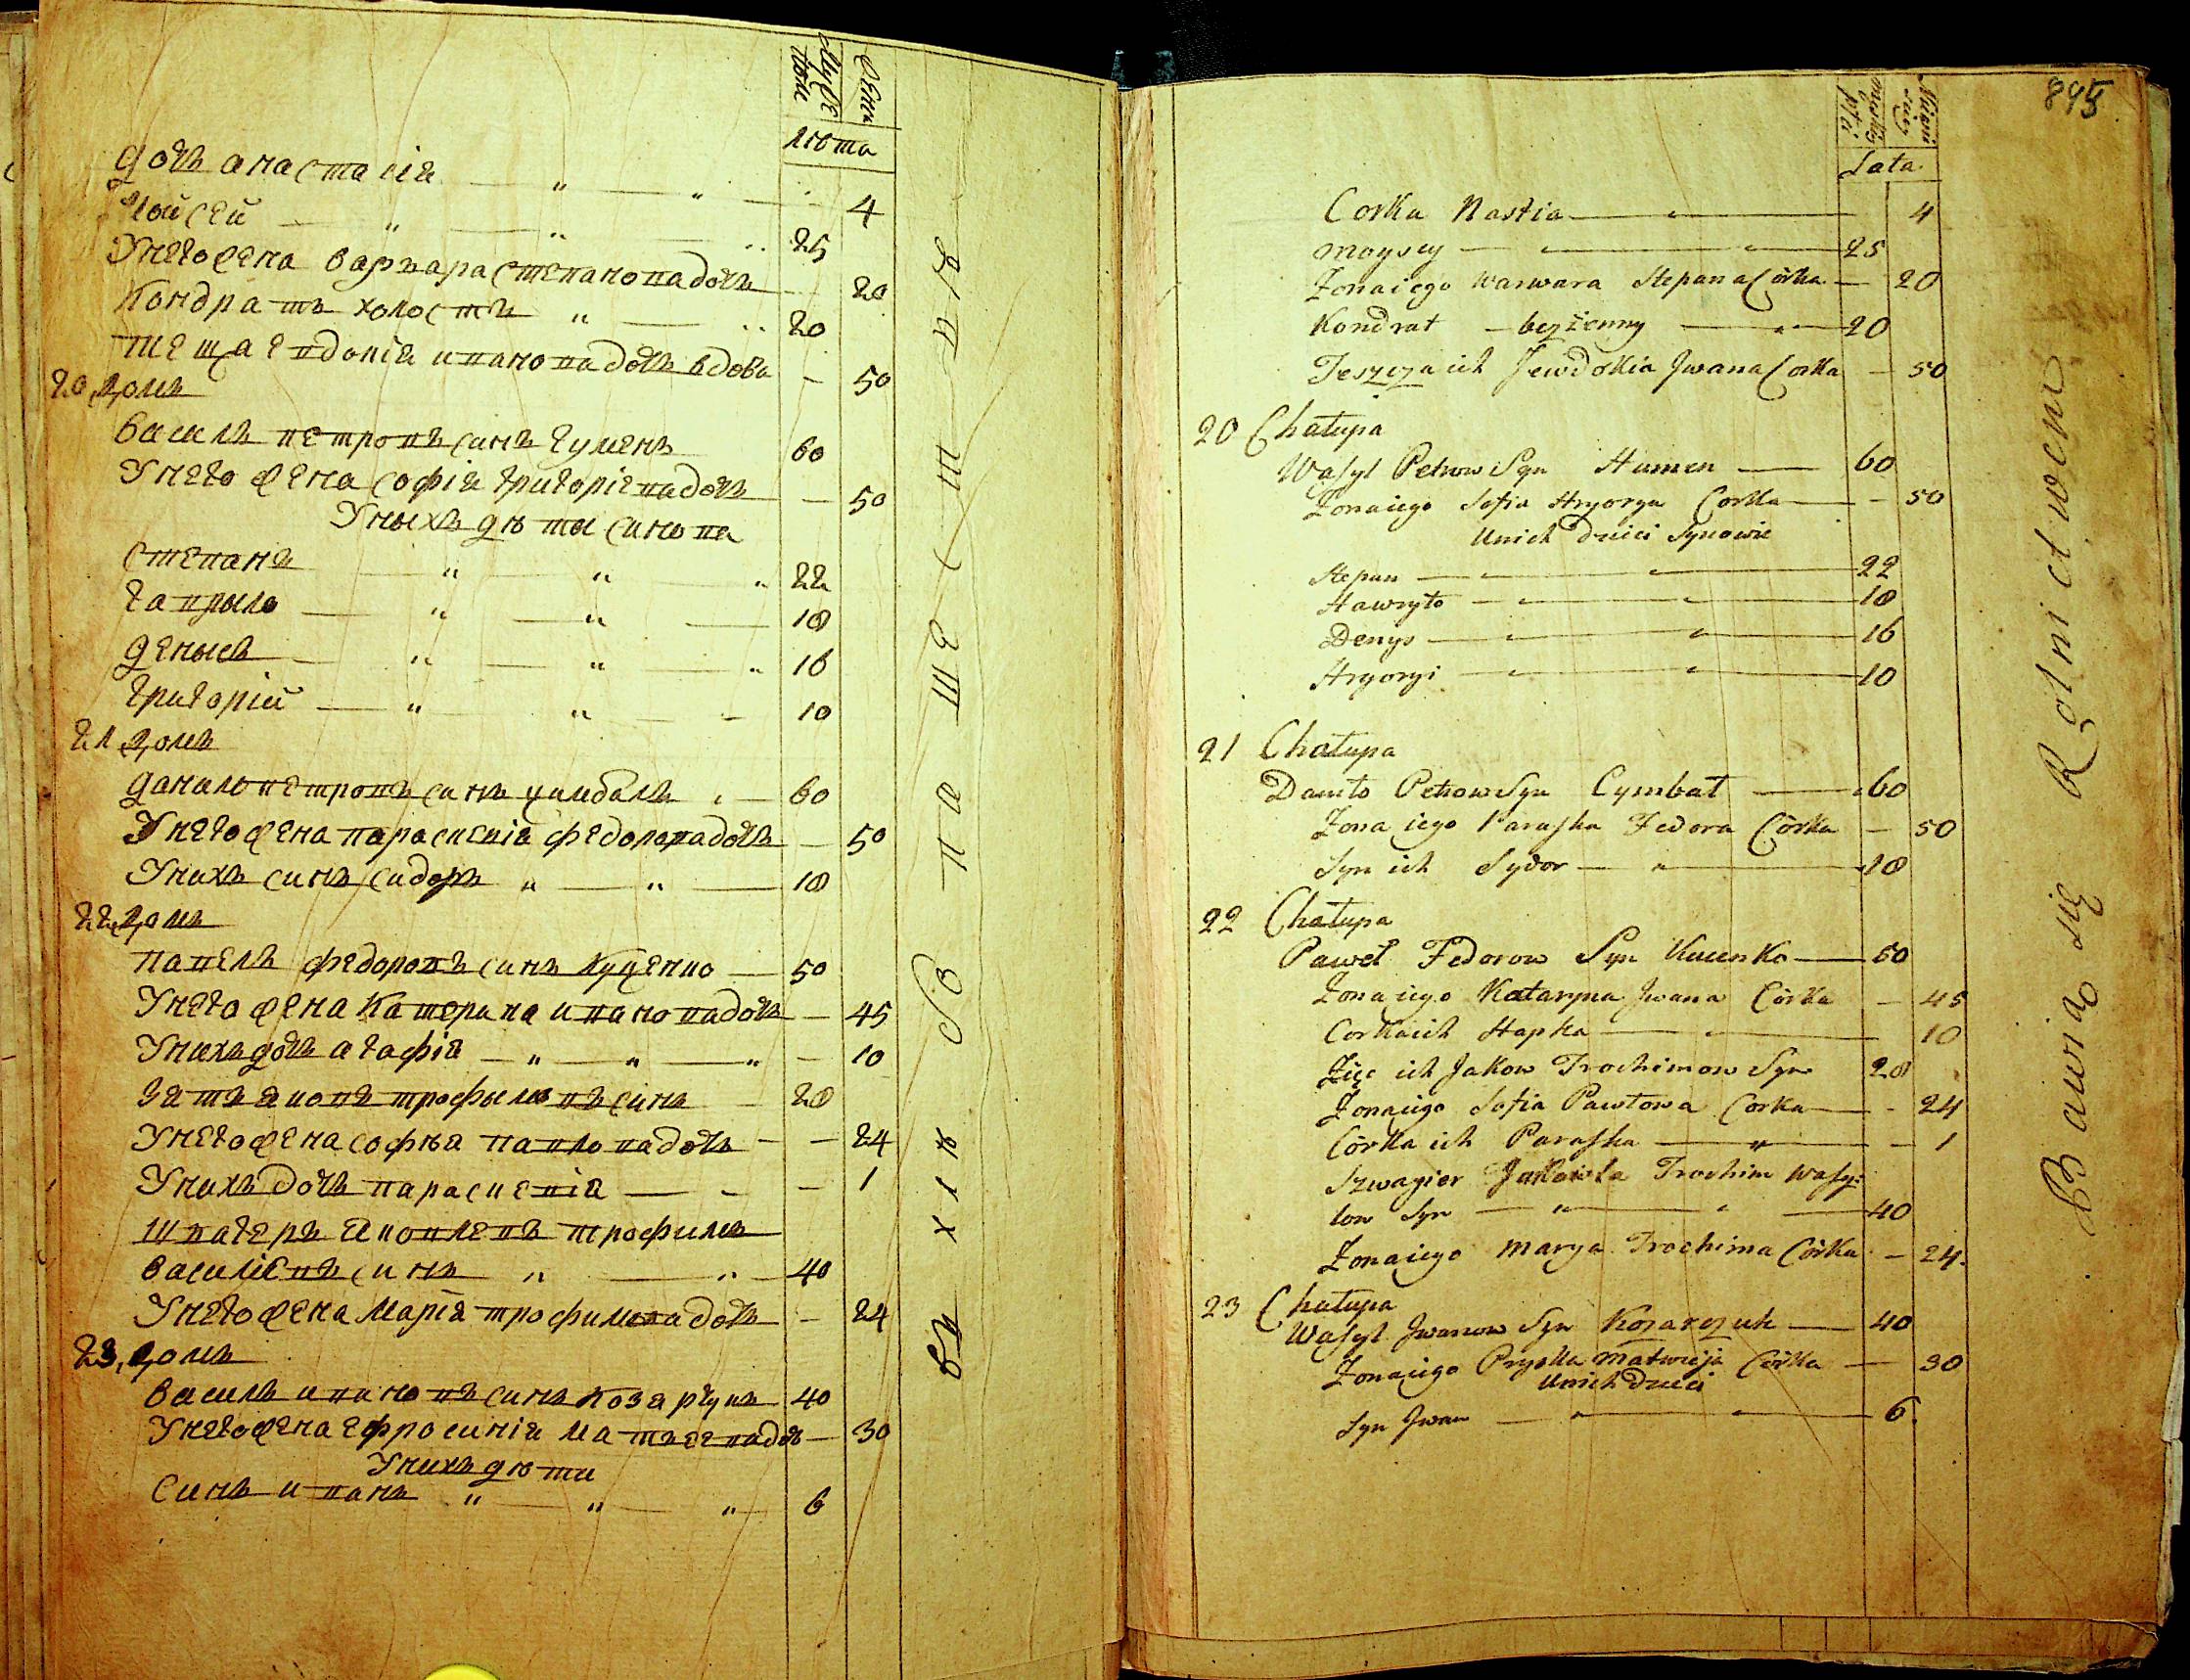 Мужеска
пола
Жен:
лѣта
дочь анастасія " " 4
Мойсей " " " 25
Унего жена варвара степанова дочь — 20
Кондратъ холостъ " " 20
теща евдокія иванова дочь вдова — 50
20 домъ
василь петровъ синъ гуменъ 60
Унего жена софія григоріева дочь — 50
Уныхъ дѣты синова
степанъ " " " 22
гаврыло " " 18
денысъ " " " 16
григорій " " 10
21 домъ
данило петровъ синъ цимбалъ 60
Унего жена параскевія федорова дочь — 50
Унихъ синъ сидоръ " " 18
22 домъ
павелъ федоровъ синъ куценко — 50
Унего жена катерина иванова дочь — 45
Унихъ дочь агафія " " " — 10
зять яковъ трофымовъ синъ 28
Унего жена софѣя павлова дочь — 24
Унихъ дочь параскевія — 1
швагеръ яковлевъ трофимъ
василіевъ синъ " " 40
Унего жена Марія трофимова дочь — 24
23 домъ
василь ивановъ синъ козарчукъ 40
Унего жена ефросинія матвеева дочь — 30
Унихъ дѣти
Синъ иванъ " " " 6
895
męskiey
płci
Lata
Corka Nastia 4
Moysey 25
Zona iego Warwara Stepana Córka — 20
Kondrat — bezżenny 20
Teszcza ich Jewdokia Jwana Corka — 50
20 Chałupa
Wasyl Petrow Syn Humen 60
Zona iego Sofia Hryorya Corka — 50
Unich dzieci Synowie
Stepan 22
Hawryło 18
Denys 16
Hryoryi 10
21 Chałupa
Daniło Petrow Syn Cymbał 60
Zona iego Paraska Fedora Córka — 50
Syn ich Sydor 18
22 Chałupa
Paweł Fedorow Syn Kucenko 50
Zona iego Kataryna Jwana Córka — 45
Corka ich Hapka 10
Zięc ich Jakow Trochimow Syn 28
Zona iego Sofia Pawłowa Corka — 24
Córka ich Paraska — 1
Szwagier Jakowła Trochim Wasy:
low Syn 40
Zona iego Marya Trochima Córka — 24
23 Chałupa
Wasyl Jwanow Syn Kozarczuk 40
Zona iego Pryska Matwieja Córka — 30
Unich Dzieci
Syn Jwan 6
Bawią się Rolnictwem